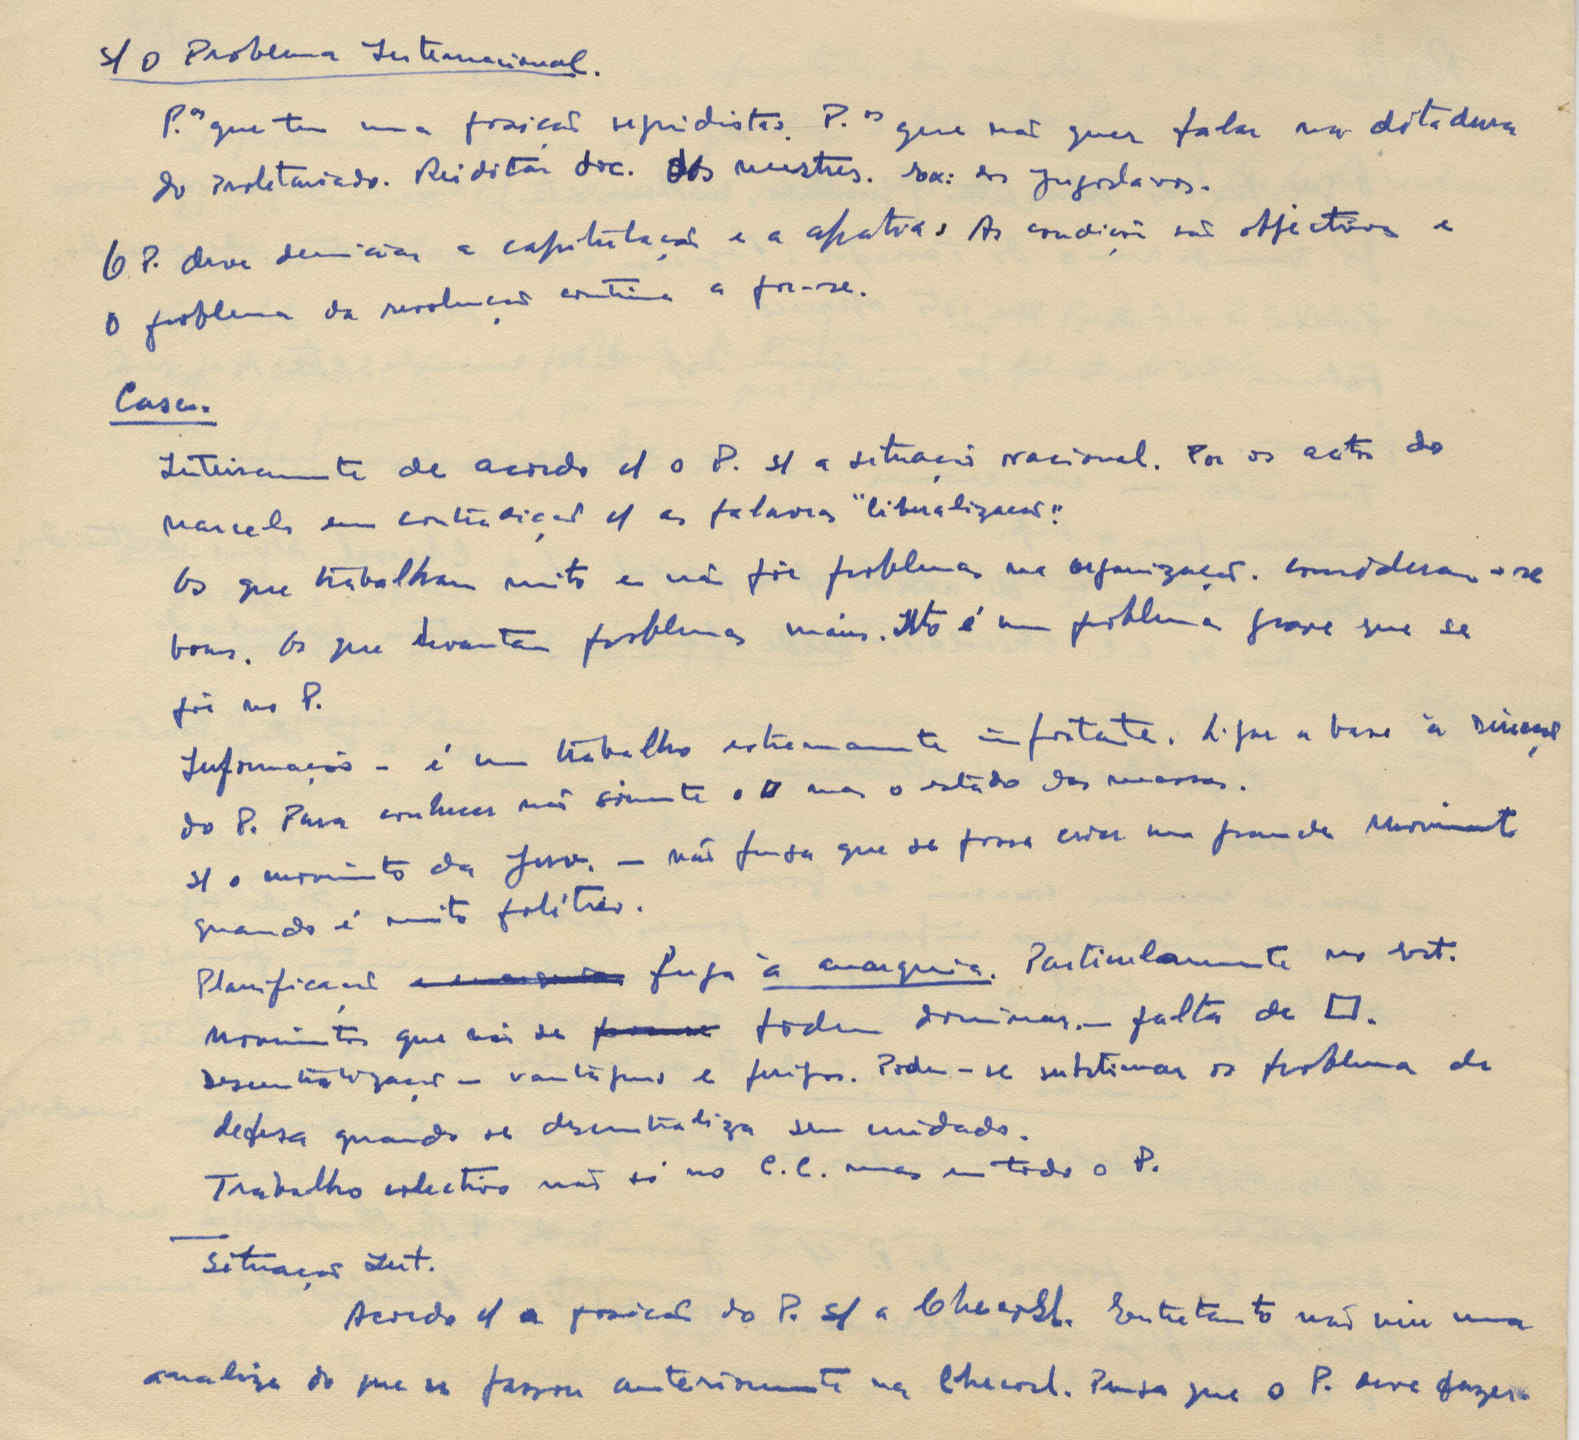 s/ o Problema Internacional.
P.os que tem uma posição seguidistas. P.os que não quer falar na ditadura
do proletariado. Reeditar doc. dos mestres. Ex: os Jugoslavos.
O P. deve denunciar a capitulação e a apatia. As condições são objectivas e
o problema da revolução continua a por-se.
Casa.
Inteiramente de acordo c/ o P. s/ a situação nacional. Por os actos do
Marcelo em contradição c/ as palavras "liberalização".
Os que trabalham muito e não põe problemas na organização. consideram-se
bons. Os que levantam problemas maus. Isto é um problema grave que se
põe no P.
Informação - é um trabalho extremamente importante. Ligar a base à Direcção
do P. Para conhecer não sòmente o □ mas o estado das massas.
s/ o movimento da Juv. - não pensa que se possa criar um grande movimento
quando é muito político.
Planificação fuga à anarquia. Particularmente no est.
Movimentos que não se podem dominar. - falta de □.
Descentralização - vantagens e perigos. Pode-se subestimar os problema de
defesa quando se descentraliza sem cuidado.
Trabalho colectivo não só no C.C. mas em todo o P.
Situação Int.
Acordo c/ a posição do P. s/ a Checosl. Entretanto não viu uma
analize do que se passou anteriormente na Checosl. Pensa que o P. deve fazer.